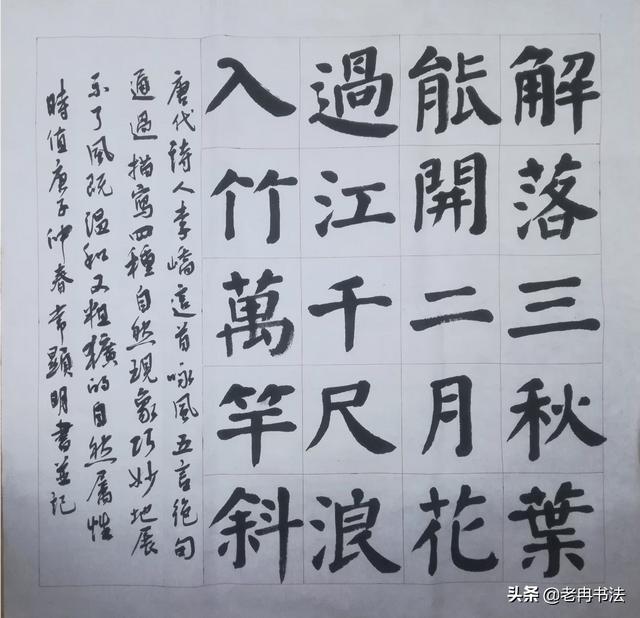 解落三秋葉
能開二月花
過江千尺浪
入竹萬竿斜
唐代詩人李嶠這首咏風五言绝句
通過描寫四種自然現象巧妙地展
示了風既温和又粗獷的自然属性
時值庚子仲春常顯明書並記
头条 @老冉书法